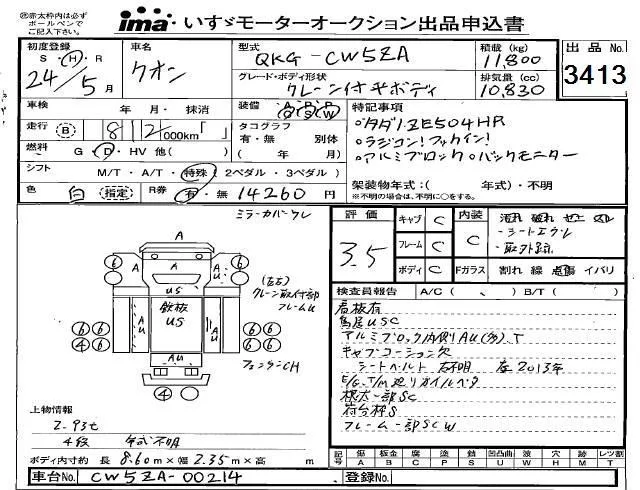 ㊟赤太枠内は必ず
ボールペンで
ご記入下さい。
ima いすゞモーターオークション出品申込書
初度登録
S・H・R
24/5月
車名
クオン
型式
QKG-CW5ZA
グレード・ボディ形状
クレーン付平ボディ
積載 (kg)
11,800
排気量 (cc)
10,830
出品 No.
3413
車検 年 月・抹消
走行 B 812,000km「 」
燃料 G D・HV 他( )
装備 A P P
C S W
タコグラフ
有・無 別体
( 年 月)
特記事項
タダノZE504HR
ラジコン!フックイン!
アルミブロック バックモニター
架装物年式:( 年式)・不明
(※不明の場合は、不明に○をする。)
シフト M/T・A/T・特殊(2ペダル・3ペダル)
色 白 指定 R券 有・無 14260円
ミラーカバークレ
A
A A
US
鉄板
US
AU AU
AU
(左右)
クレーン取付部
フレームU
フェンダーCH
6 6
6 6
6 6 6 6
4 6 6 6
4
上物情報
2.93t
4段 年式不明
ボディ内寸約 長 8.60m×幅 2.35m×高 m
車台No. CW5ZA-00214
登録No.
評価
3.5
キャブ C
フレーム C
ボディ C
内装 C
Fガラス 割れ 線 点傷 イバリ
検査員報告 A/C( 、 ) B/T( )
看板有
鳥居USC
アルミブロック内側AU(多).T
キャブコーション欠
シートベルト 左2013年
E/G.T/M廻りオイルベタ
根太一部SC
荷台枠S
フレーム一部SCW
記号 傷 板金 腐 塗 錆 凹凸曲 波 穴 時 レツ割
A B C P S U W H M T